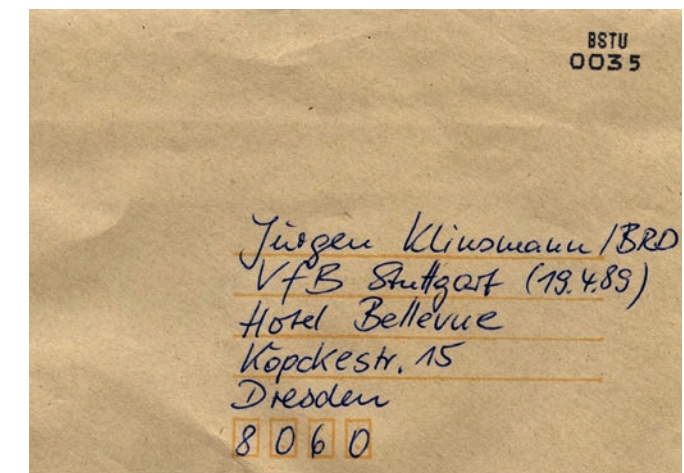 BSTU
0035
Jürgen Klinsmann/BRD
VfB Stuttgart (19.4.89)
Hotel Bellevue
Köpckestr. 15
Dresden
8060